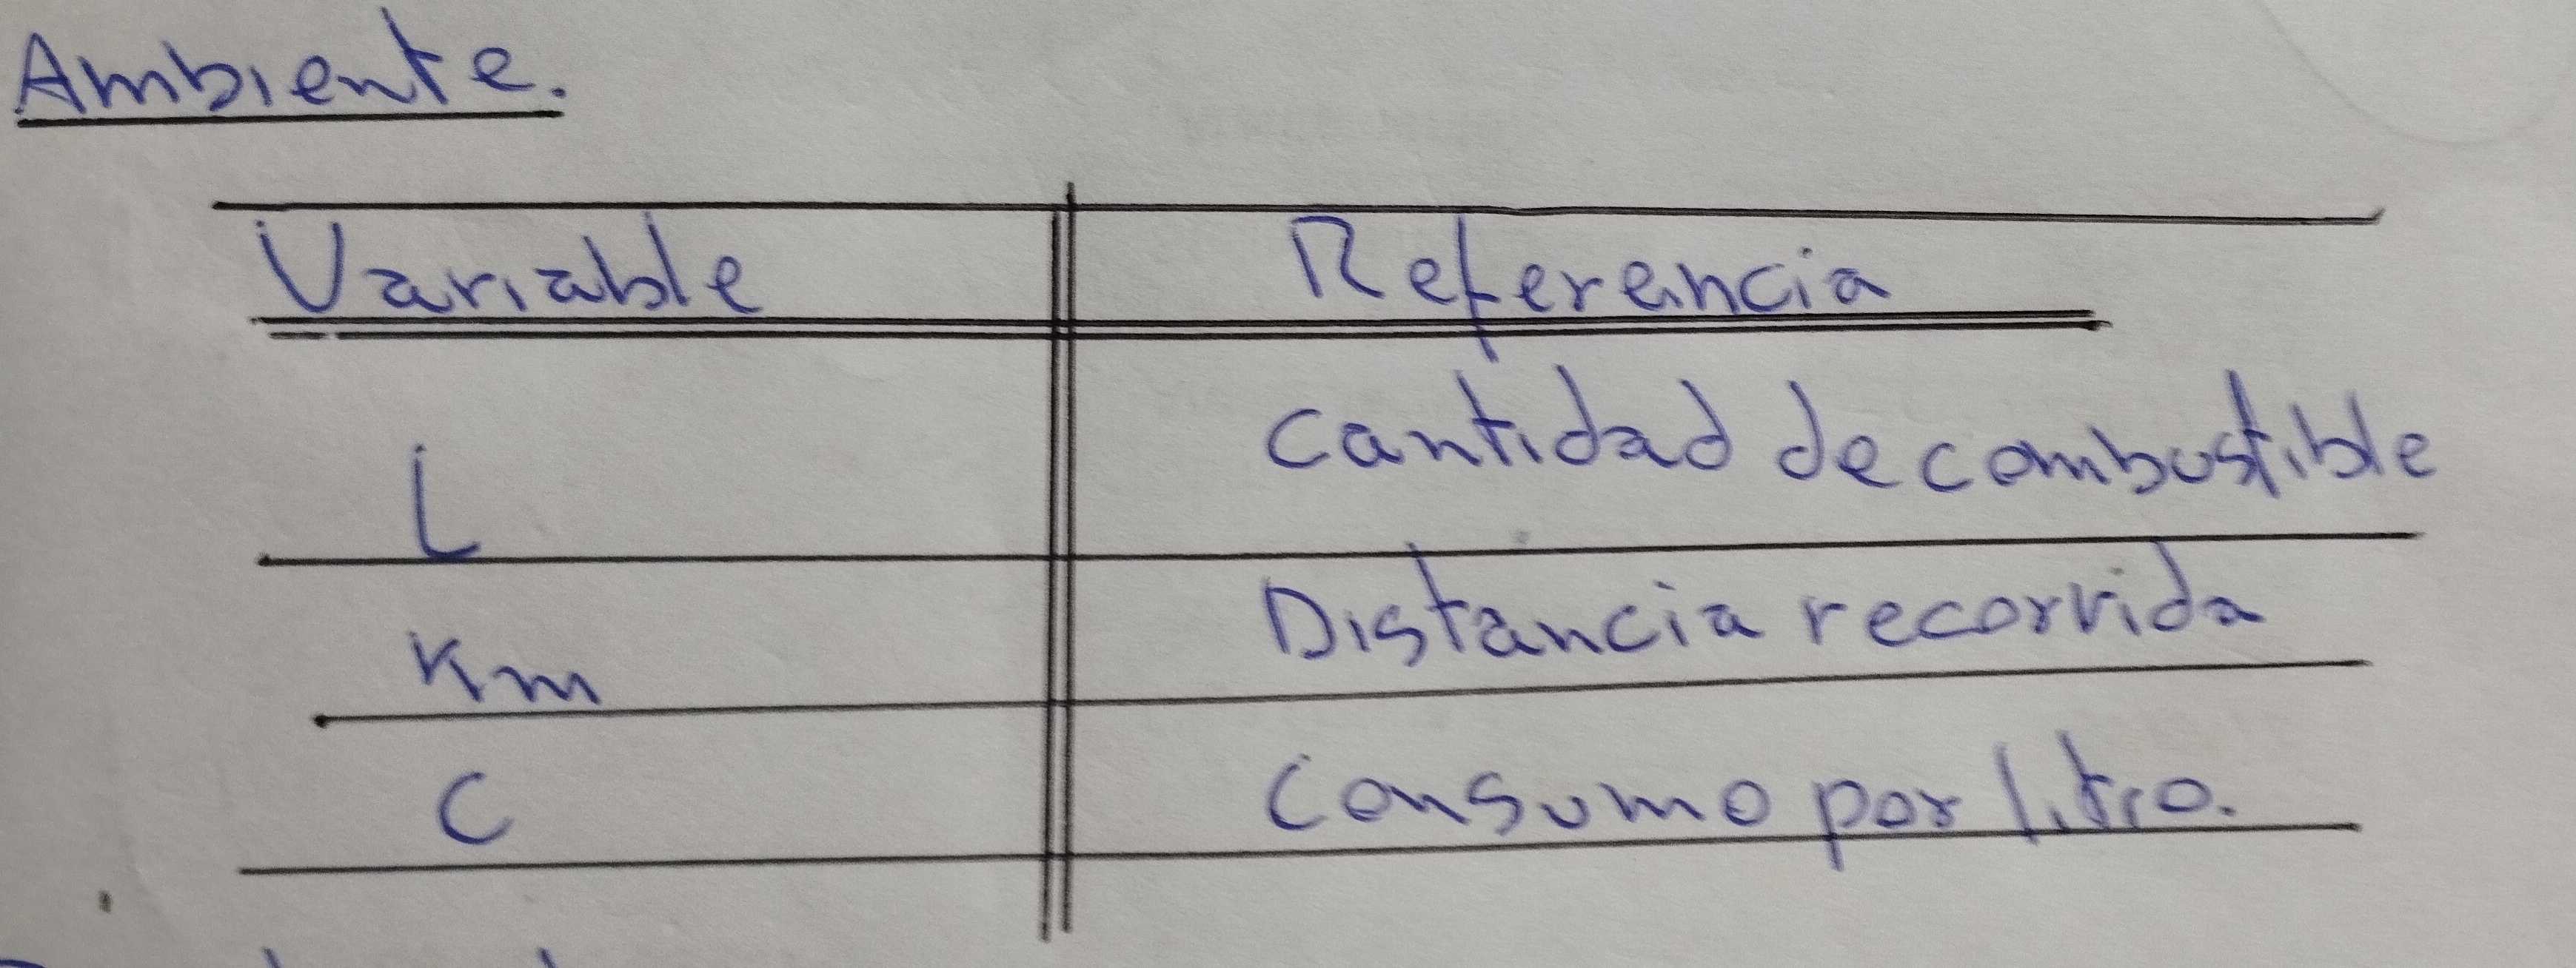 Ambiente.
Variable Referencia
L Cantidad de combustible
Km Distancia recorrida
C Consumo por litro.